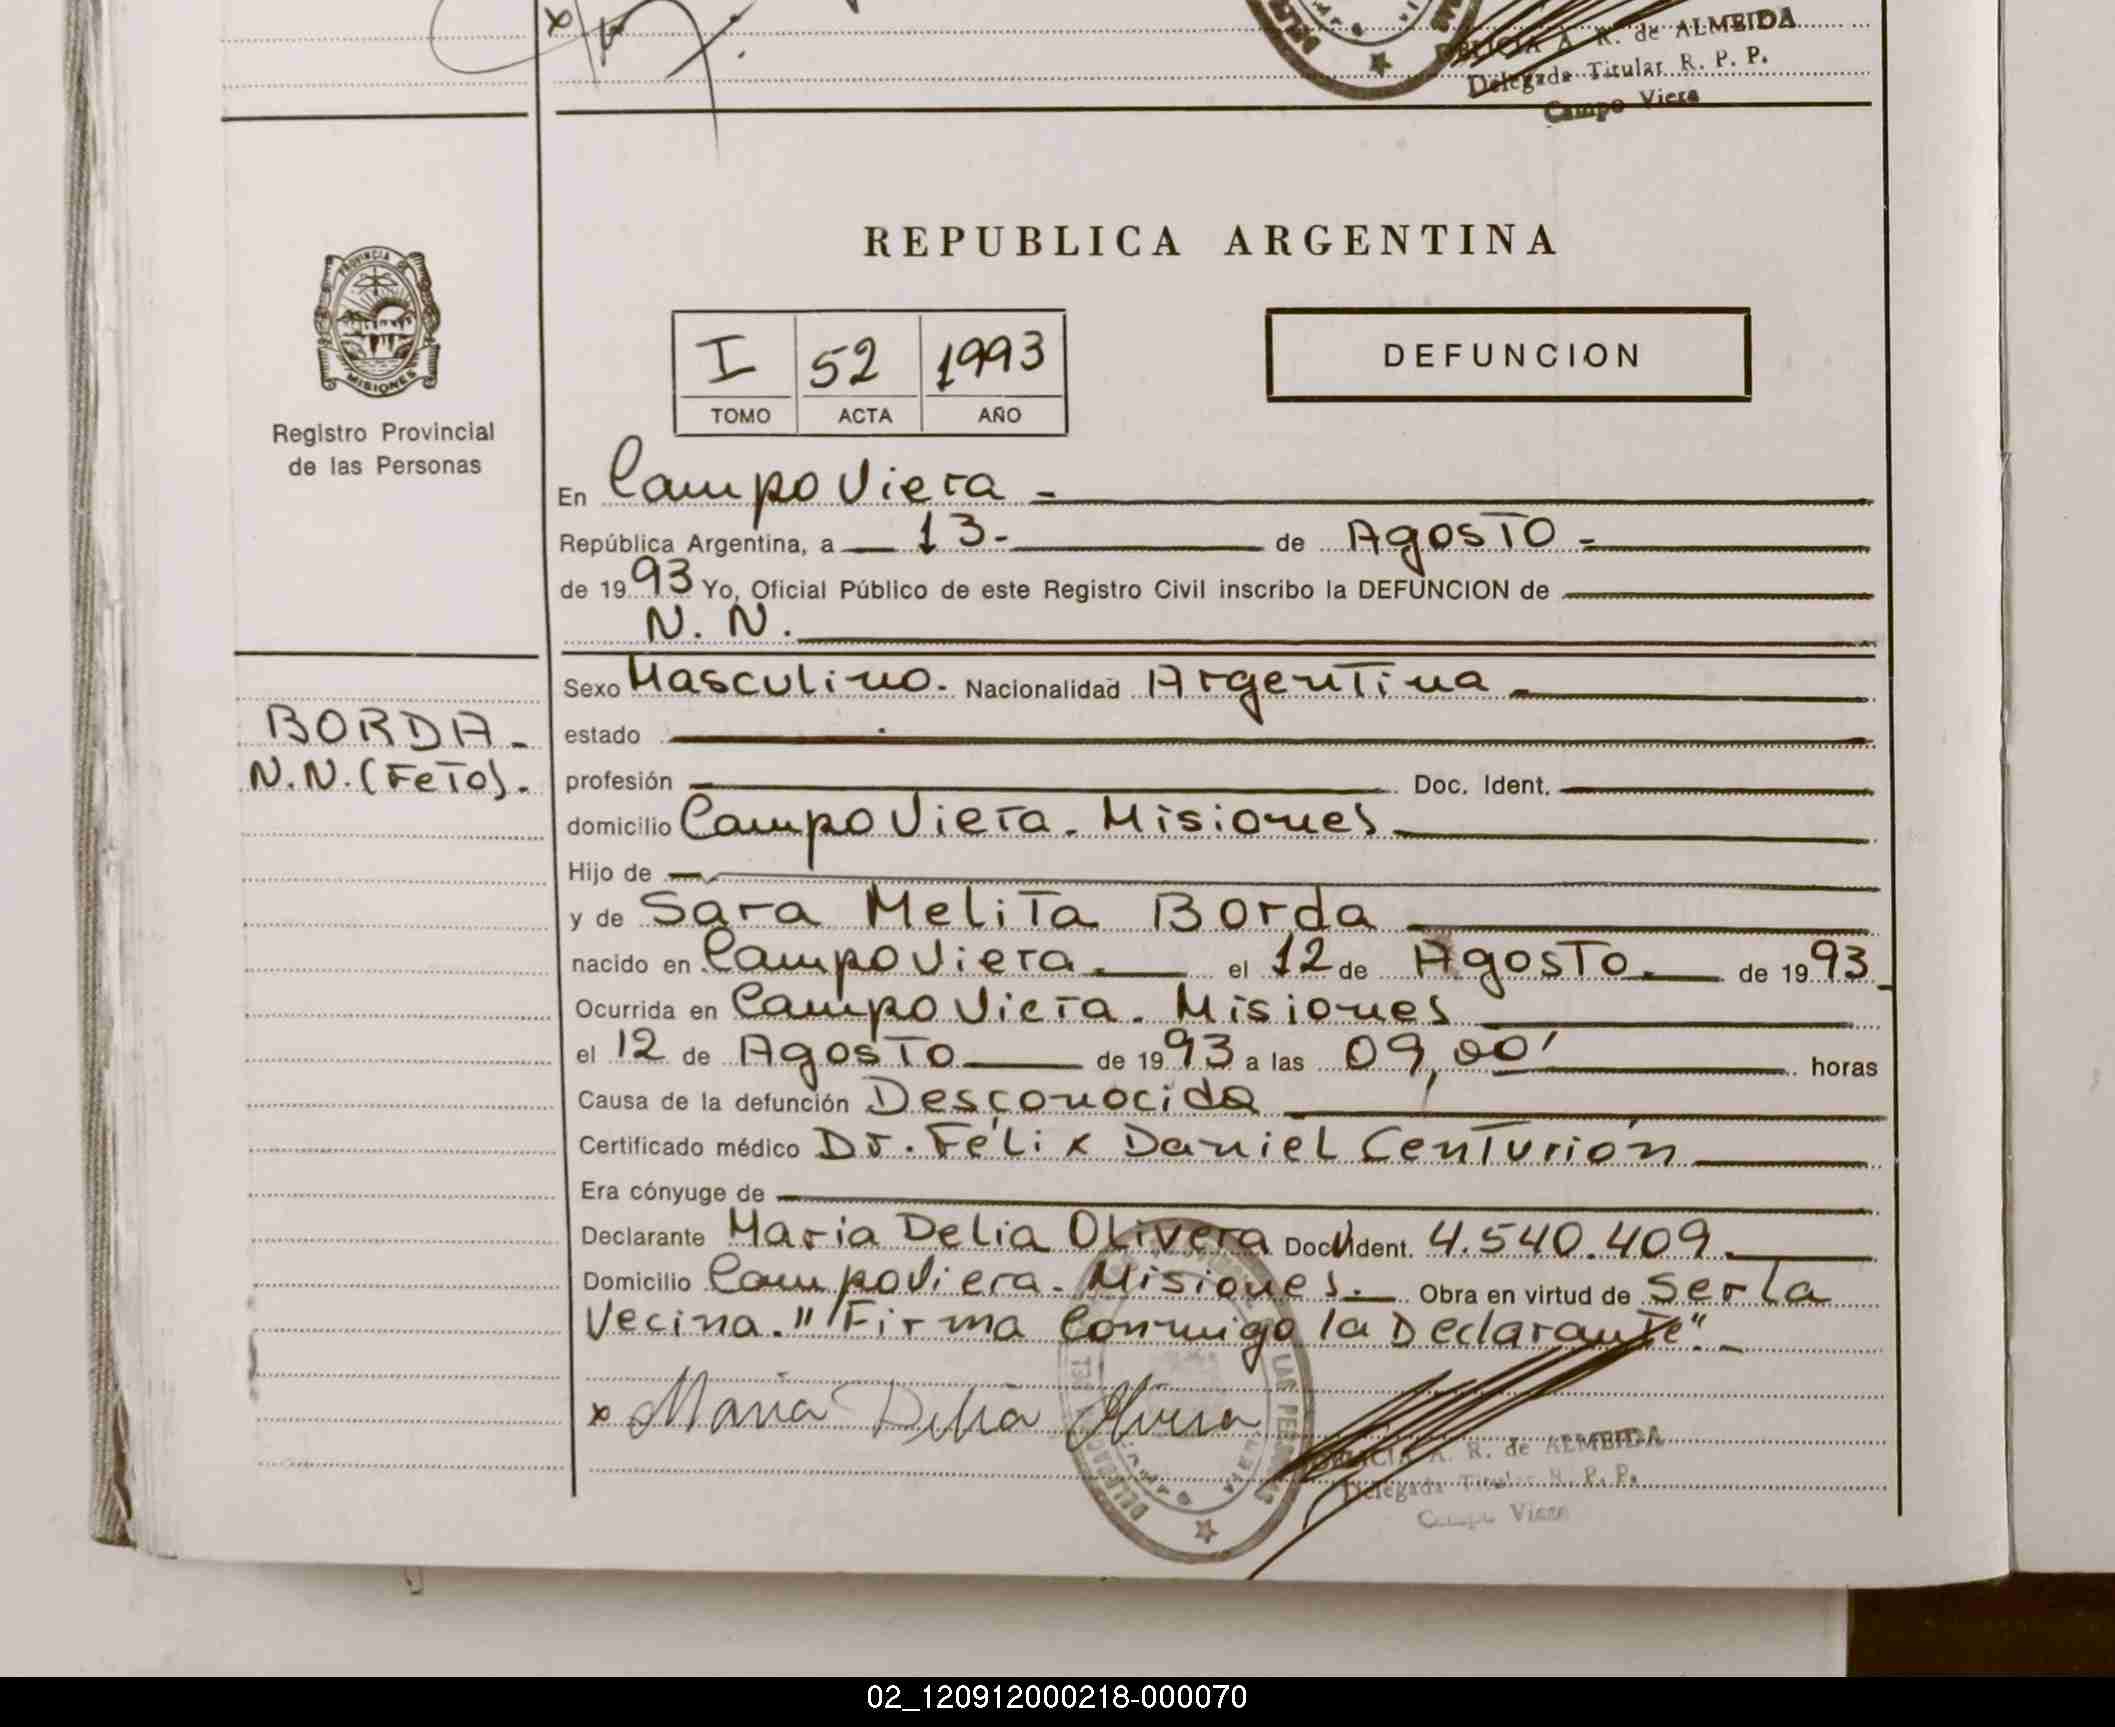 DELICIA A. R. de ALMEIDA
Delegada Titular R. P. P.
Campo Viera
REPUBLICA ARGENTINA
PROVINCIA DE
MISIONES
Registro Provincial
de las Personas
I 52 1993
TOMO ACTA AÑO
DEFUNCION
En Campo Viera -
República Argentina, a 13- de Agosto -
de 1993 Yo, Oficial Público de este Registro Civil inscribo la DEFUNCION de
N. N.
Sexo Masculino. Nacionalidad Argentina
estado
BORDA -
N.N. (Feto).
profesión Doc. Ident.
domicilio Campo Viera. Misiones
Hijo de
y de Sara Melita Borda
nacido en Campo Viera. el 12 de Agosto. de 1993
Ocurrida en Campo Viera. Misiones
el 12 de Agosto de 1993 a las 09,00' horas
Causa de la defunción Desconocida
Certificado médico Dr. Félix Daniel Centurión
Era cónyuge de
Declarante Maria Delia Olivera Doc. Ident. 4.540.409.
Domicilio Campo Viera. Misiones. Obra en virtud de ser la
Vecina. "Firma Conmigo la Declarante". -
x Maria Delia Olivera
DELICIA A. R. de ALMEIDA
Delegada Titular R. P. P.
Campo Viera
02_120912000218-000070